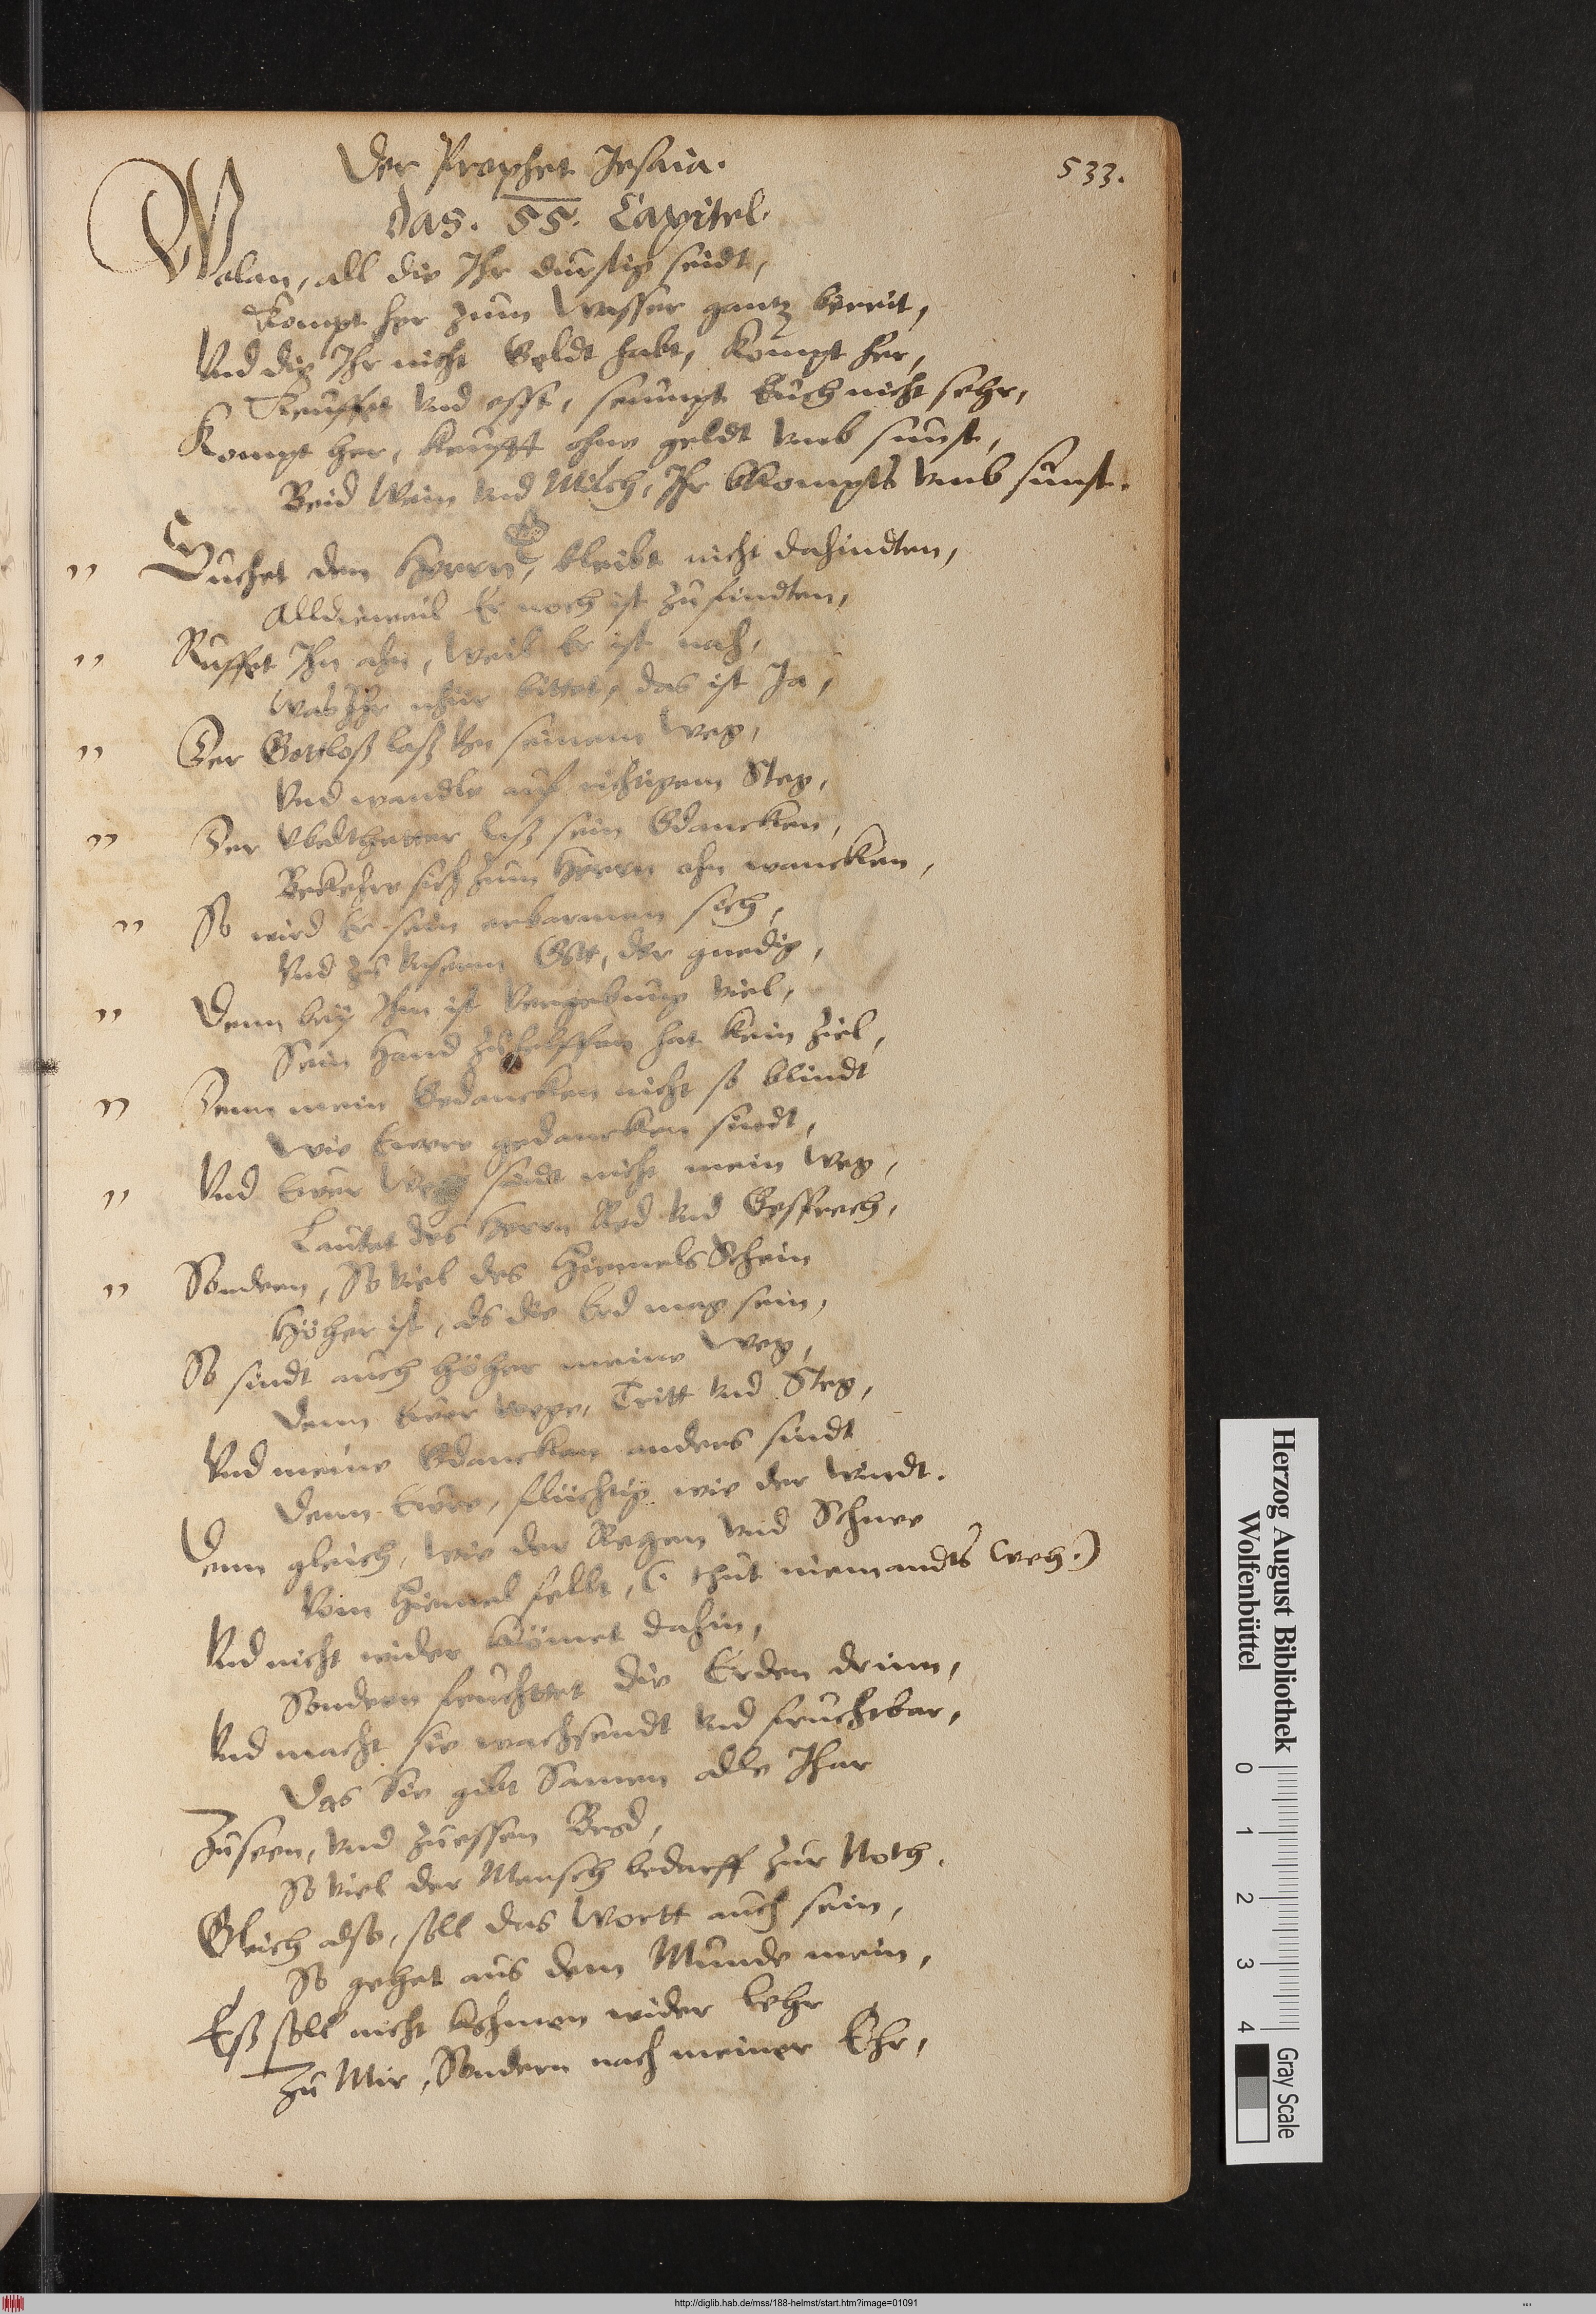 Der Prophet Jesaia.
533.
Das. 55. Capitel.
Wolan, all die Ihr durstig seidt,
Kompt her zum Wasser gantz bereit,
Vnd die Ihr nicht Geldt habt, kompt her,
Keuffet vnd esst, seumpt Euch nicht sehr,
Kompt her, keufft ohne geldt vmb sunst,
Beid Wein vnd Milch, Ihr bkompts vmb sunst.
" Suchet den Herrn, bleibt nicht dahindten,
Alldieweil Er noch ist zu findten,
" Ruffet Ihn ahn, weil Er ist nah,
Was Ihr nhur bittet, das ist Ja,
" Der Gottloß laß von seinem Weg,
Vnd wandle auf richtigem Steg,
" Der Vbelthetter laß sein Gdancken,
Bekehre sich zum Herrn ohn wancken,
" So wird Er sein erbarmen sich,
Vnd zu vnserm Gott, der gnedig,
" Denn bey Ihm ist Vergebung viel,
Sein Hand zu helffen hat kein Ziel,
" Denn mein Gedancken nicht so blindt
Wie Ewre gedancken sindt,
" Vnd Ewer Weg sindt nicht mein Weg,
Lautet des Herrn Red vnd Gesprech,
" Sondern, So viel des Himmels Schein
Höher ist, als die Erd mag sein,
So sindt auch höher meine Weg,
Denn Ewer wege, Tritt vnd Steg,
Vnd meine Gdancken anders sindt
Denn Ewre, flüchtig wie der Windt.
Denn gleich, wie der Regen vnd Schnee
Vom Himmel fellt, (: thut niemandts weh:)
Vnd nicht wider kömet dahin,
Sondern feuchttet die Erden drinn,
Vnd macht sie wachsendt vnd fruchtbar,
Das Sie gibt Samen alle Jhar
Zuseen, vnd zuessen Brod,
So viel der Mensch bedarff zur Noth.
Gleich also, soll das Wortt auch sein,
So gehet aus dem Munde mein,
Eß soll nicht kohmen wider lehr
Zu Mir, Sondern nach meiner Ehr,
Herzog August Bibliothek
Wolfenbüttel
0 1 2 3 4
Gray Scale
http://diglib.hab.de/mss/188-helmst/start.htm?image=01091